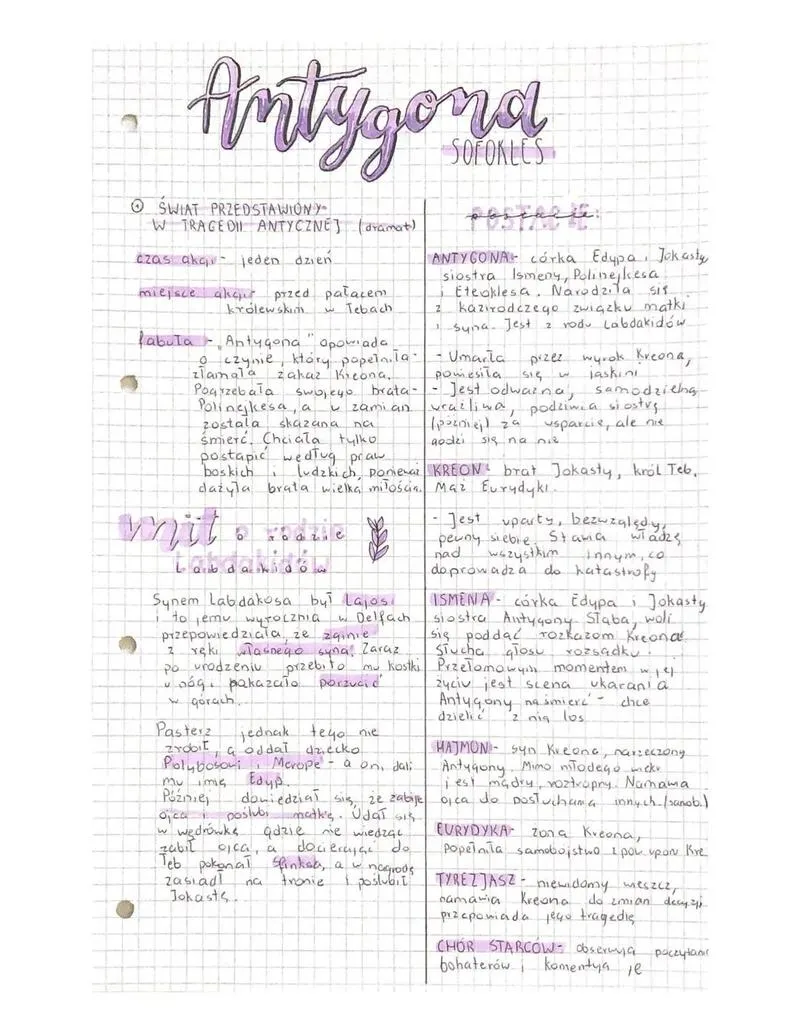 Antygona
SOFOKLES
ŚWIAT PRZEDSTAWIONY
W TRAGEDII ANTYCZNEJ (dramat)
czas akcji - jeden dzień
miejsce akcji - przed pałacem
królewskim w Tebach
fabuła - "Antygona" opowiada
o czynie, który popełniła -
złamała zakaz Kreona.
Pogrzebała swojego brata -
Polinejkesa, a w zamian
została skazana na
śmierć. Chciała tylko
postąpić według praw
boskich i ludzkich, ponieważ
dażyła brata wielką miłością.
mit o rodzie
Labdakidów
Synem Labdakosa był Lajos
i to jemu wyrocznia w Delfach
przepowiedziała, że zginie
z ręki własnego syna. Zaraz
po urodzeniu przebito mu kostki
u nóg i pokazało porzucić
w górach.
Pasterz jednak tego nie
zrobił, a oddał dziecko
Polybosowi i Merope - a oni dali
mu imię Edyp.
Później dowiedział się, że zabije
ojca i poślubi matkę. Udał się
w wędrówkę gdzie nie wiedząc
zabił ojca, a docierając do
Teb pokonał Sfinksa, a w nagrodę
zasiadł na tronie i poślubił
Jokastę.
postacie:
ANTYGONA - córka Edypa i Jokasty
siostra Ismeny, Polinejkesa
i Eteoklesa. Narodziła się
z kazirodczego związku matki
i syna. Jest z rodu Labdakidów
- Umarła przez wyrok Kreona,
powiesiła się w jaskini
- Jest odważna, samodzielna
wrażliwa, podziwia siostrę
(później) za wsparcie, ale nie
godzi się na nie
KREON - brat Jokasty, król Teb.
Mąż Eurydyki.
- Jest uparty, bezwzględy,
pewny siebie. Stawia władzę
nad wszystkim innym, co
doprowadza do katastrofy
ISMENA - córka Edypa i Jokasty
siostra Antygony. Słaba, woli
się poddać rozkazom Kreona.
Słucha głosu rozsądku.
Przełomowym momentem w jej
życiu jest scena ukarania
Antygony na śmierć - chce
dzielić z nią los
HAJMON - syn Kreona, narzeczony
Antygony. Mimo młodego wieku
jest mądry, roztropny. Namawa
ojca do posłuchania innych. (samob.)
EURYDYKA - żona Kreona,
popełniła samobojstwo z pow. uporu Kre
TYREZJASZ - niewidomy wieszcz,
namawia Kreona do zmian decyzji
przepowiada jego tragedię
CHÓR STARCÓW - obserwują poczytani
bohaterów i komentują je